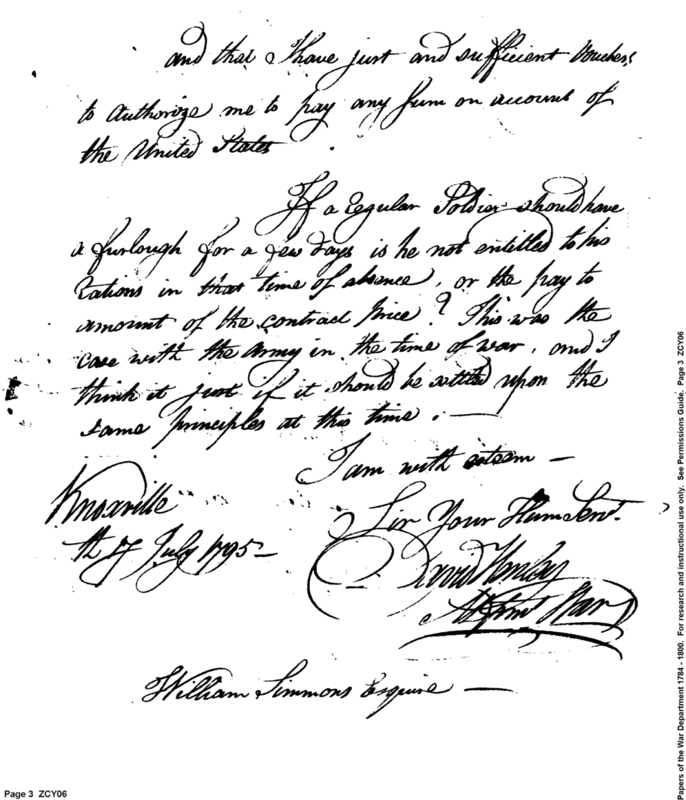 and that I have just and sufficient Vouchers
to Authorize me to pay any Sum on account of
the United States
If a Regular Soldier should have
a furlough for a few days is he not entitled to his
Rations in that time of absence, or the pay to
amount of the Contract Price? This was the
case with the Army in the time of war, and I
think it just if it should be settled upon the
same principles at this time.
I am with esteem
Knoxville
Sir Your Hum Servt.
July 1795
David Henley
War
William Simmons Esquire
Page 3 ZCY06
Papers of the War Department 1784 - 1800. For research and instructional use only. See Permissions Guide. Page 3 ZCY06